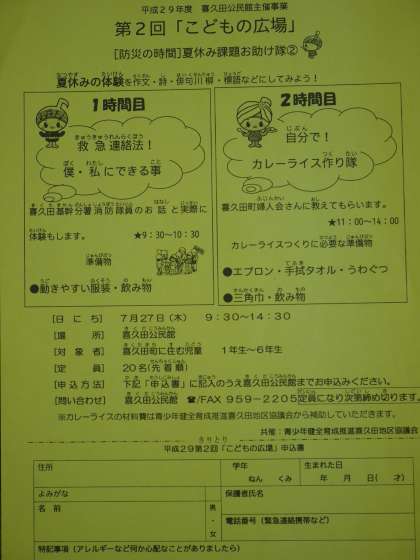 平成29年度 喜久田公民館主催事業
第2回「こどもの広場」
[防災の時間]夏休み課題お助け隊②
夏休みの体験を作文・詩・俳句川柳・標語などにしてみよう!
1時間目
救急連絡法!
僕・私にできる事
喜久田基幹分署消防隊員のお話と実際に
体験もします。 ★9:30~10:30
準備物
●動きやすい服装・飲み物
2時間目
自分で!
カレーライス作り隊
喜久田町婦人会さんに教えてもらいます。
★11:00~14:00
カレーライスつくりに必要な準備物
●エプロン・手拭タオル・うわぐつ
●三角巾・飲み物
[日にち] 7月27日(木) 9:30~14:30
[場所] 喜久田公民館
[対象者] 喜久田町に住む児童 1年生~6年生
[定員] 20名(先着順)
[申込方法] 下記「申込書」に記入のうえ喜久田公民館までお申込みください。
[問い合わせ] 喜久田公民館 ☎/FAX 959-2205 定員になり次第締め切ります。
※カレーライスの材料費は青少年健全育成推進喜久田地区協議会から補助していただきます。
共催:青少年健全育成推進喜久田地区協議会
きりとり
平成29第2回「こどもの広場」申込書
住所
学年
ねん くみ
生まれた日
年 月 日( 才)
よみがな
名前
男・女
保護者氏名
電話番号(緊急連絡携帯など)
特記事項(アレルギーなど何か心配なことがありましたら)